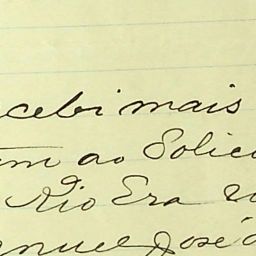 cebi mais
ao Solici
Rio Era
anuel José